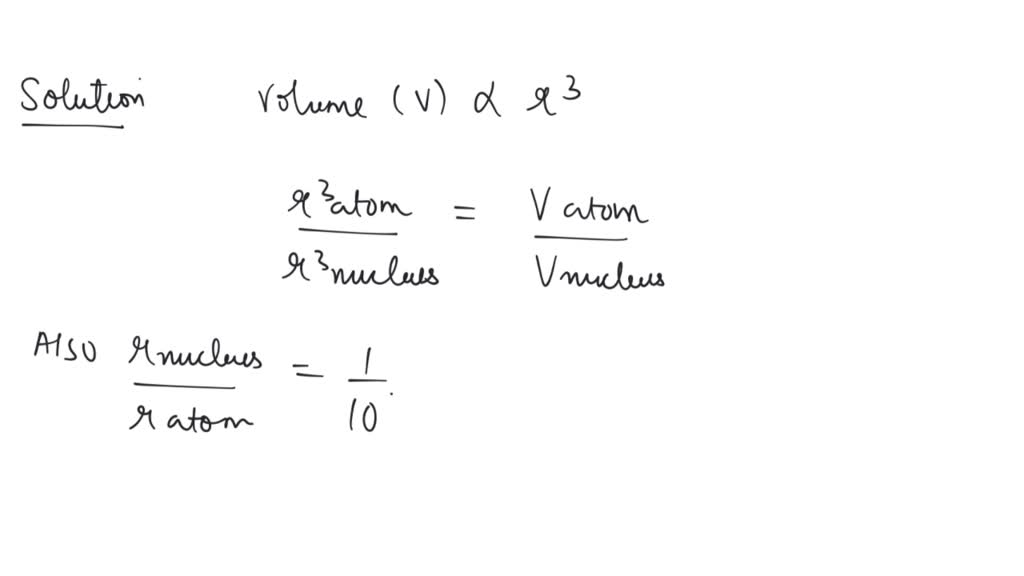 Solution Volume (V) ∝ r³
r³atom / r³nucleus = V atom / Vnucleus
Also rnucleus / r atom = 1 / 10